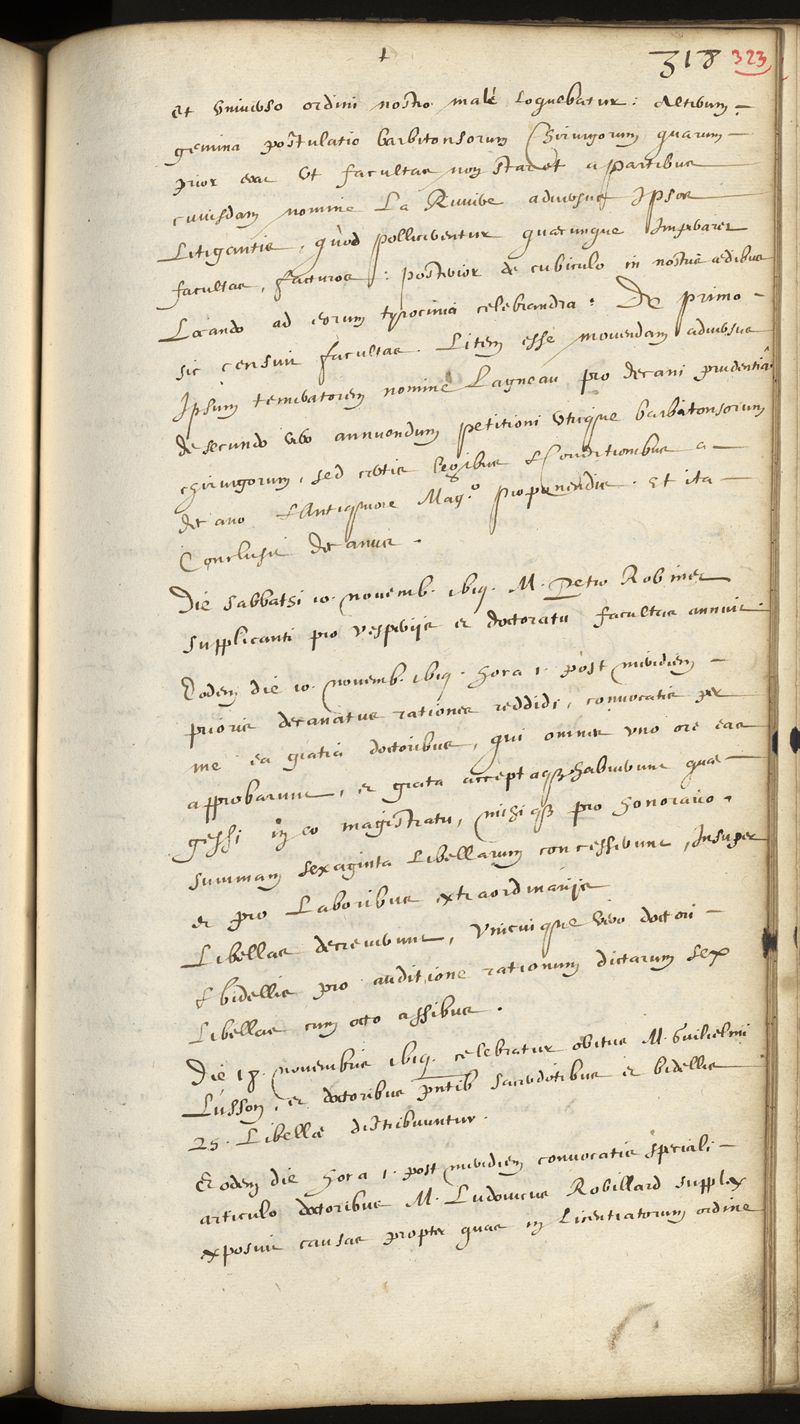 1
318 323
et vniuerso ordini nostro malè loquebatur: Alterum –
gemina postulatio barbitonsorum Chirurgorum quarum –
prior erat Vt facultas non staret a partibus
cuiusdam nomine La Riuiere aduersus Ipsos
Litigantis, quòd pollicerentur quæcunque Imperaret
facultas, facturos: posterior de cubiculo in nostris ædibus
Locando ad eorum tyrocinia celebranda: De primo –
sic censuit facultas. Litem esse mouendam aduersus
Ipsum temeratorem nomine Lagneau pro decani prudentiâ
de secundo vero annuendum petitioni Vtrique barbitonsorum
chirurgorum, sed certis legibus & Conditionibus a –
decano & Antiquiore Mag.º proponendis. Et ita –
Conclusit decanus.
Die sabbathi 10. nouemb. ibiq. M. Petro Robinet
supplicanti pro vesperiis et doctoratu facultas annuit.
Eodem die 10. nouemb. ibiq. hora 1. post meridiem –
prioris decanatus rationes reddidi, conuocatis per
me ea gratia doctoribus, qui omnes vno ore eas
approbarunt, et grata acceptaq3 habuerunt quæ –
gessi in eo magistratu, mihiq3 pro honorario.
summam sexaginta Libellarum concesserunt, Insuper
et pro Laboribus extraordinariis
Libellas decreuerunt, Vnicuique vero doctori –
& bidellis pro auditione rationum dictarum sex
Libellas cum octo assibus.
Die 18. nouembris ibiq. celebratur obitus M. Guilielmi
Lusson, et doctoribus pntib sacerdotibus et bidellis
25. Libellæ distribuuntur.
Eodem die hora 1. post meridiem conuocatis speciali –
articulo doctoribus M. Ludouicus Robillard supplex
exposuit causas propter quas in Licentiatorum ordine